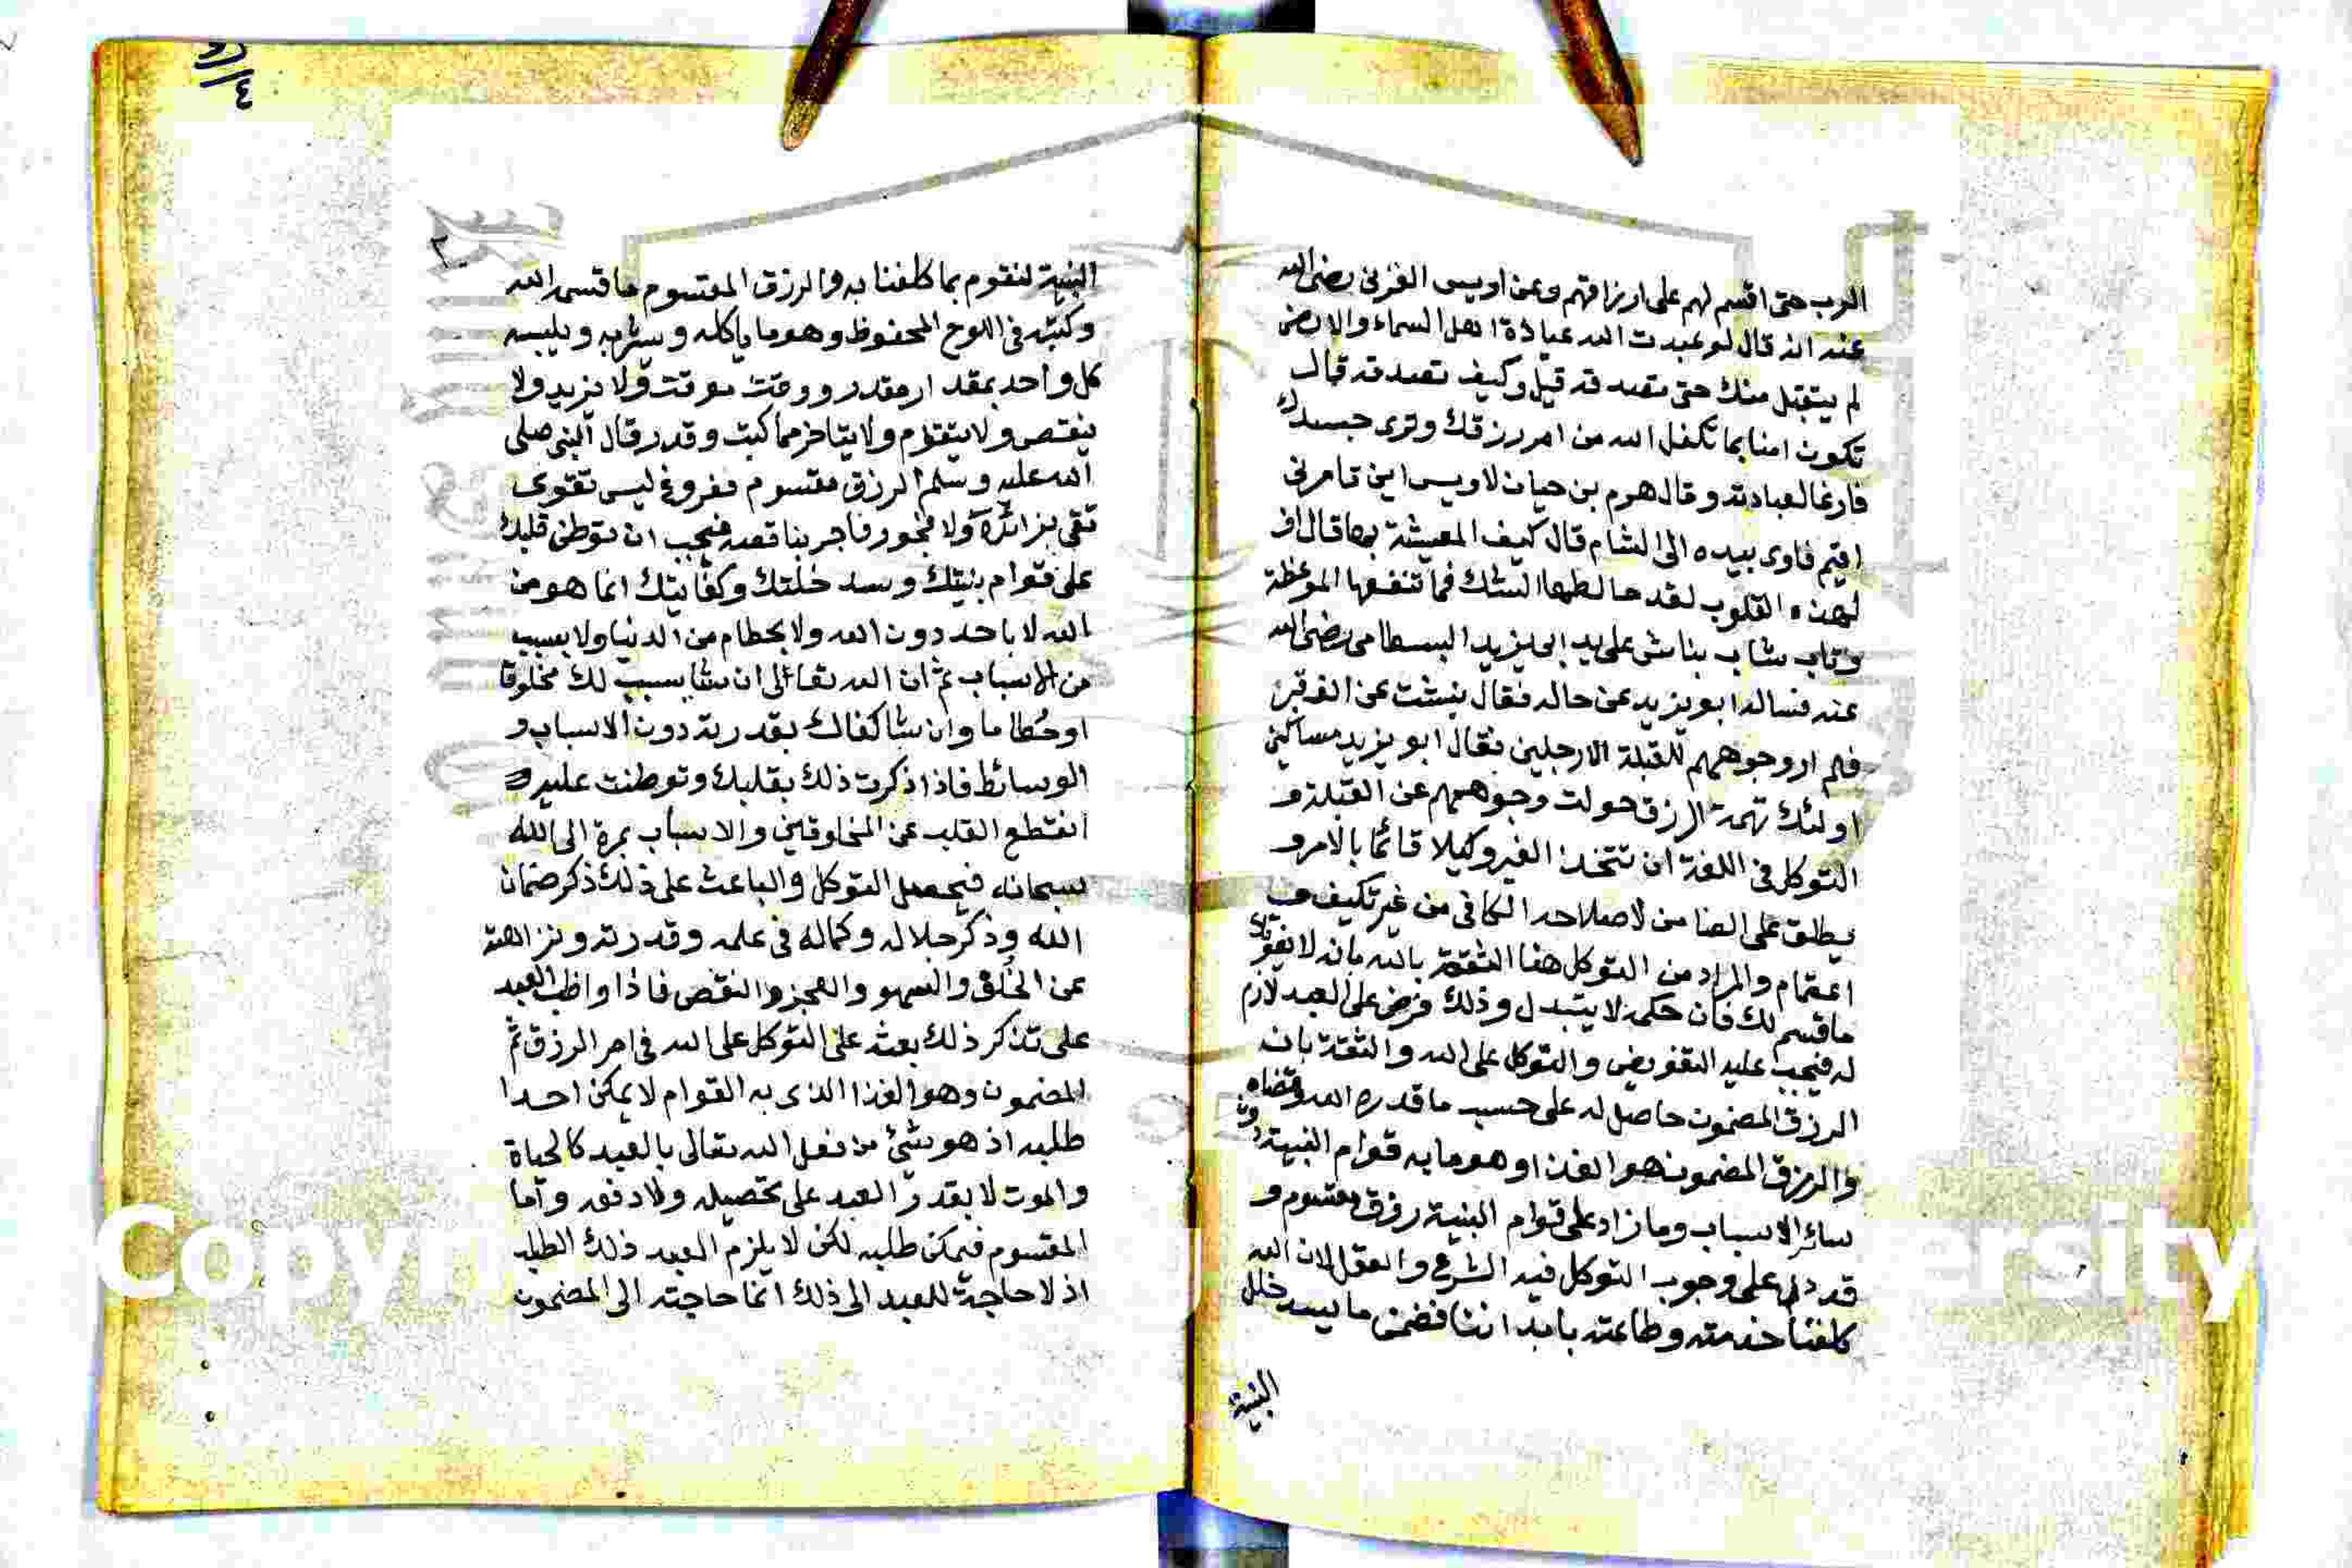 الرب حتى اقسم لهم على ارزاقهم وعن اويس القرني رضى الله
عنه انه قال لو عبدت الله عبادة اهل السماء والارض
لم يتقبل منك حتى تصدقه قيل وكيف تصدقه قال
تكون امنا بما تكفل الله من امر رزقك وترى جسدك
فارغا لعبادته وقال هرم بن حيان لاويس اين تامرنى
اقيم فاوى بيده الى الشام قال كيف المعيشة بها قال اف
لهذه القلوب لقد خالطها الشك فما تنفعها الموعظة
وتاب شاب نباش على يد ابى يزيد البسطامى رضى الله
عنه فساله ابو يزيد عن حاله فقال نبشت عن الف قبر
فلم ار وجوههم للقبلة الا رجلين فقال ابو يزيد مساكين
اولئك تهمة الرزق حولت وجوههم عن القبلة و
التوكل فى اللغة ان تتخذ الغير وكيلا قائما بالامر و
يطلق على الضامن لاصلاحه الكافى من غير تكليف و
اعتمام والمراد من التوكل هنا الثقة بالله بانه لا يفوتك
ما قسم لك فان حكمه لا يتبدل وذلك فرض على العبد لازم
له فيجب عليه التفويض والتوكل على الله والثقة بان
الرزق المضمون حاصل له على حسب ما قدره الله وقضاه
والرزق المضمون هو الغذا وهو ما به قوام البنية دون
سائر الاسباب وما زاد على قوام البنية رزق مقسوم و
قد دل على وجوب التوكل فيه الشرع والعقل لان الله
كلفنا خدمته وطاعته بابداننا فضمن ما يسد خلل
البنية
٢٠
البنية لنقوم بما كلفنا به والرزق المقسوم ما قسمه الله
وكتبه فى اللوح المحفوظ وهو ما ياكله ويشربه ويلبسه
كل واحد بمقدار مقدر ووقت موقت ولا يزيد ولا
ينقص ولا يتقدم ولا يتاخر مما كتب وقدر وقال النبى صلى
الله عليه وسلم الرزق مقسوم مفروغ ليس تقوى
تقى بزائده ولا فجور فاجر بناقصه فيجب ان توطن قلبك
على قوام بنيتك وسد خلتك وكفايتك انما هو من
الله لا باحد دون الله ولا بحطام من الدنيا ولا بسبب
من الاسباب ثم ان الله تعالى ان شا يسبب لك مخلوقا
او حُطاما وان شا كفاك بقدرته دون الاسباب و
الوسائط فاذا ذكرت ذلك بقلبك وتوطنت عليه و
انقطع القلب عن المخلوقين والاسباب بمرة الى الله
سبحانه فيحصل التوكل والباعث على ذلك ذكر ضمان
الله وذكر جلاله وكماله فى علمه وقدرته ونزاهته
عن الخُلف والسهو والعجز والنقص فاذا واظب العبد
على تذكر ذلك بعثه على التوكل على الله فى امر الرزق ثم
المضمون وهو الغذا الذى به القوام لا يمكن احدا
طلبه اذ هو شئ من فعل الله تعالى بالعبد كالحياة
والموت لا يقدر العبد على تحصيله ولا دفعه واما
المقسوم فيمكن طلبه لكن لا يلزم العبد ذلك الطلب
اذ لا حاجة للعبد الى ذلك انما حاجته الى المضمون